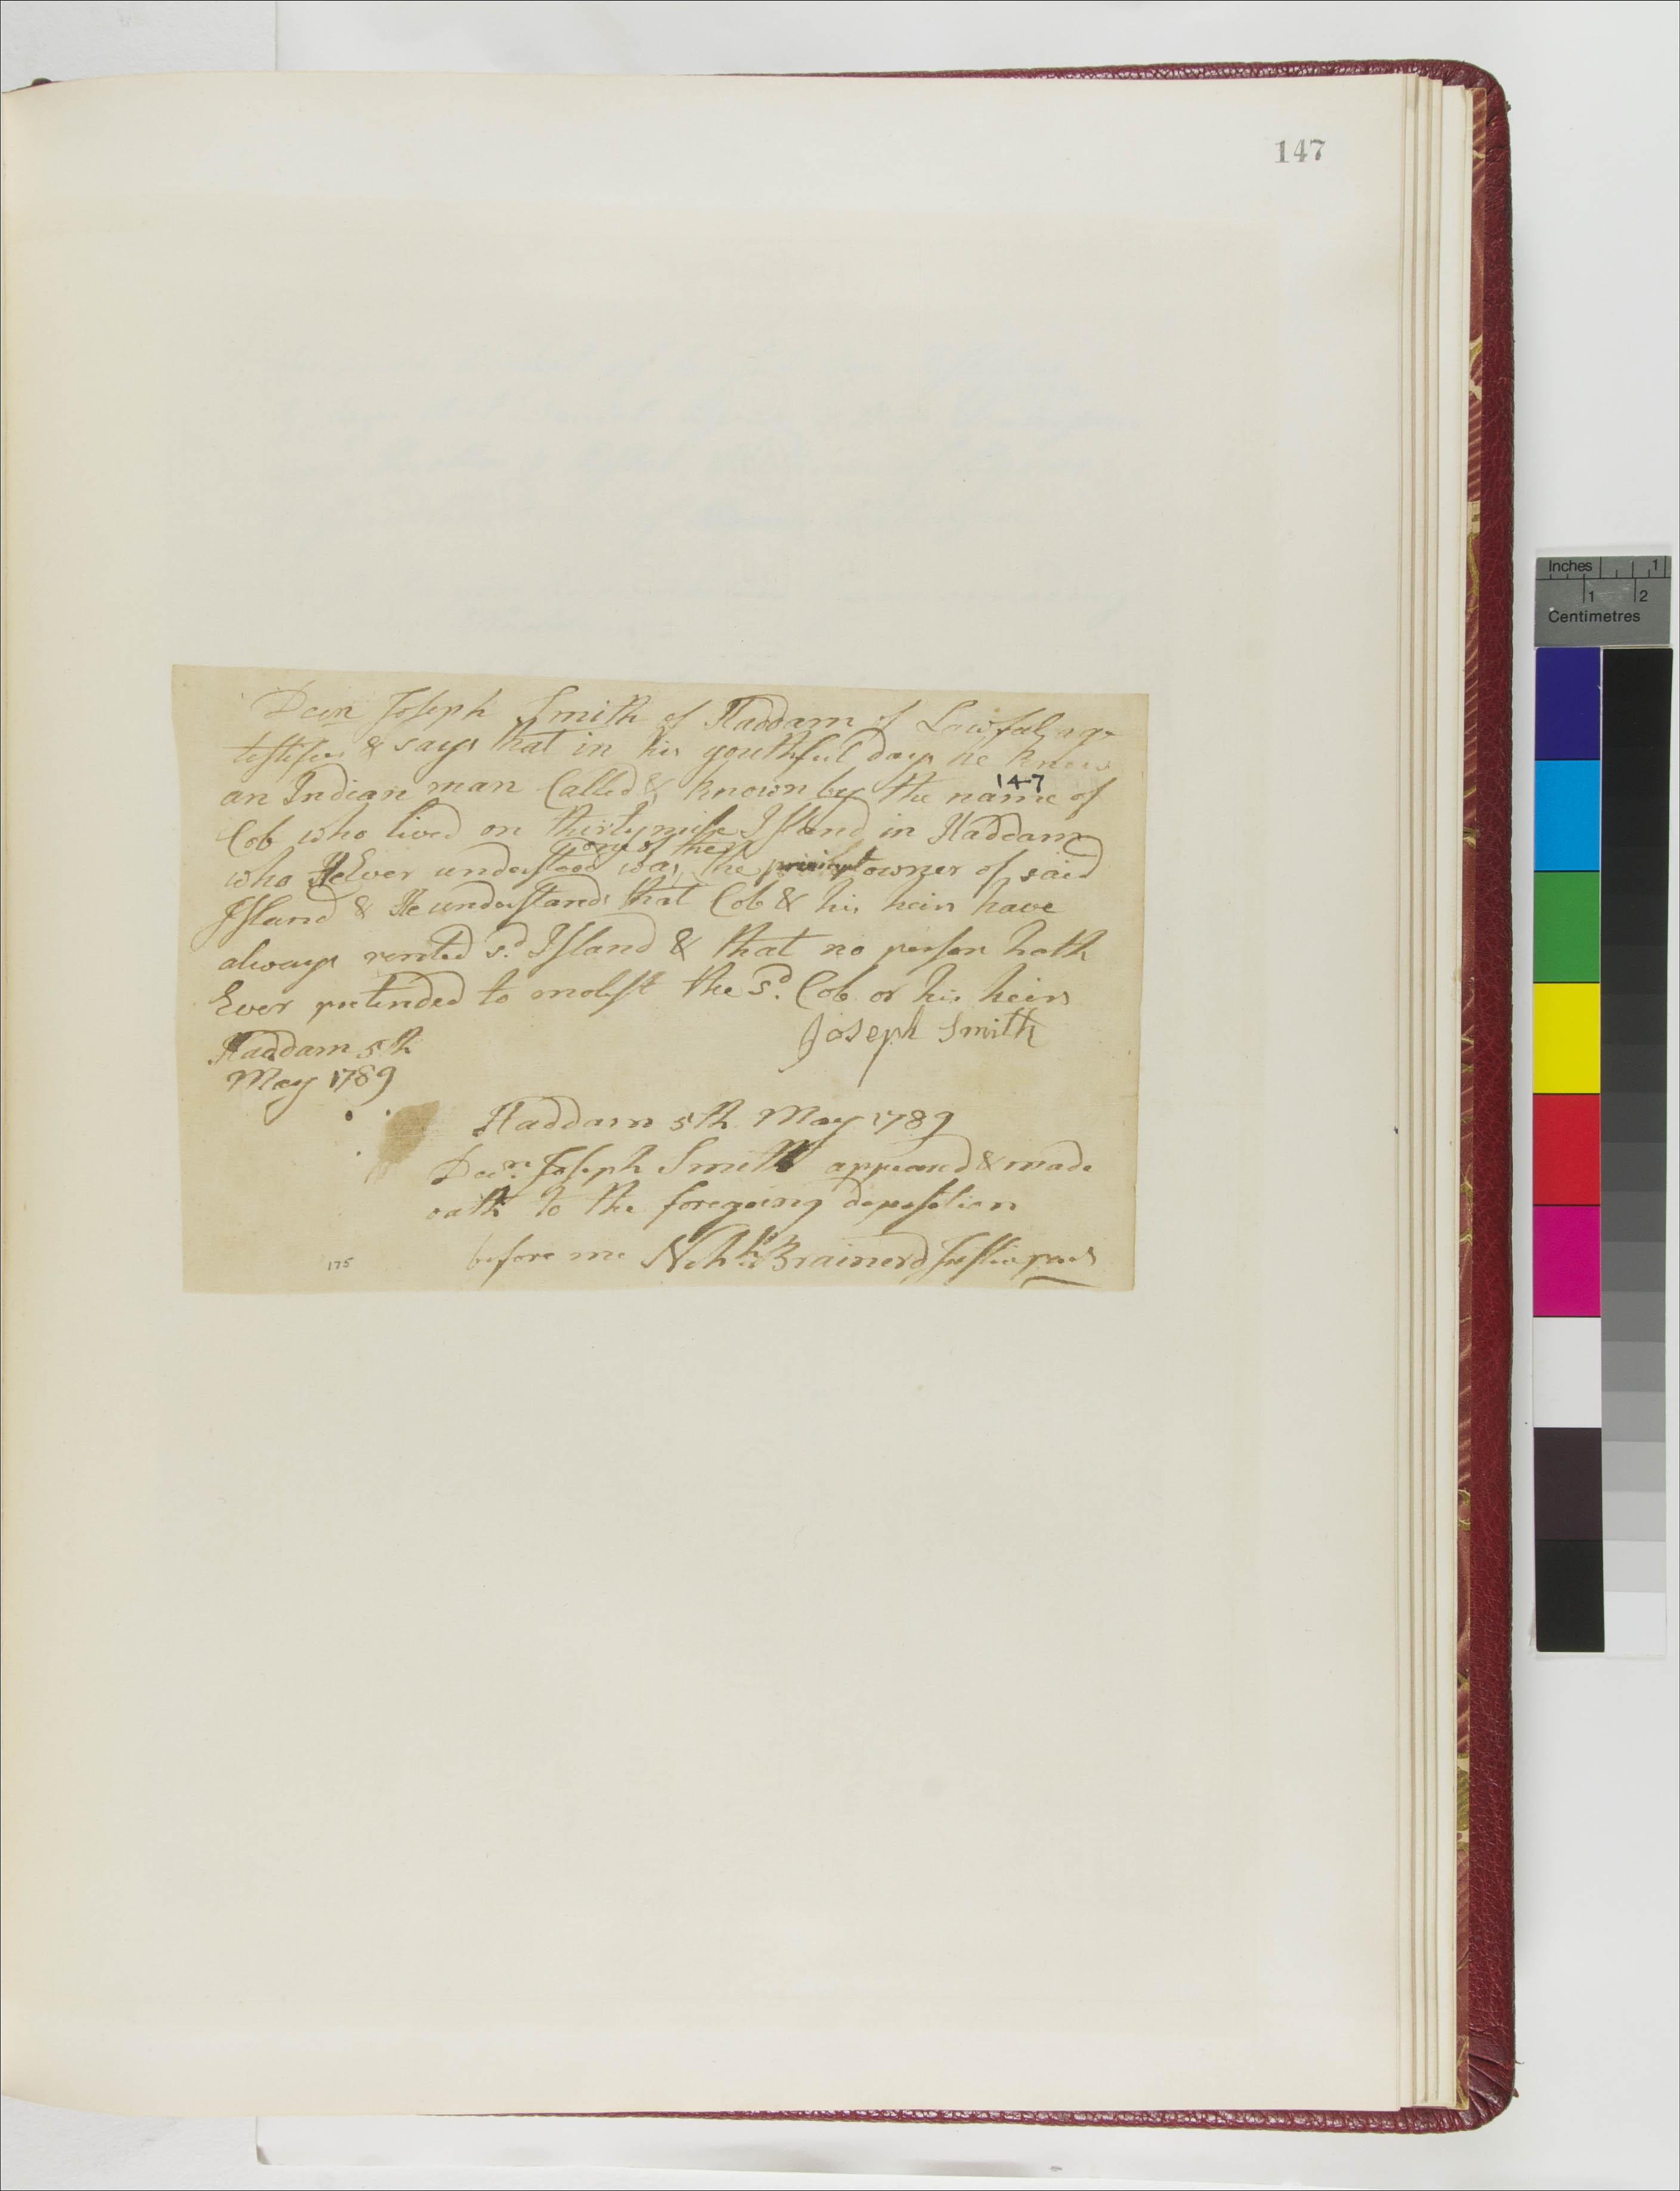 147
Decn Joseph Smith of Haddam of Lawful age
testifies & says that in his youthful days he knew
an Indian man Called & known by the name of
147
Cob who lived on thirty mile Island in Haddam
one of the
who He Ever understood was the owner of said
Island & He understands that Cob & his heirs have
always rented sd. Island & that no person hath
Ever pretended to molest the sd. Cob or his heirs
Joseph Smith
Haddam 5th
May 1789
Haddam 5th May 1789
Decn. Joseph Smith appeared & made
oath to the foregoing deposition
before me Nehh. Brainerd Justice peace
175
Inches 1
1 2
Centimetres